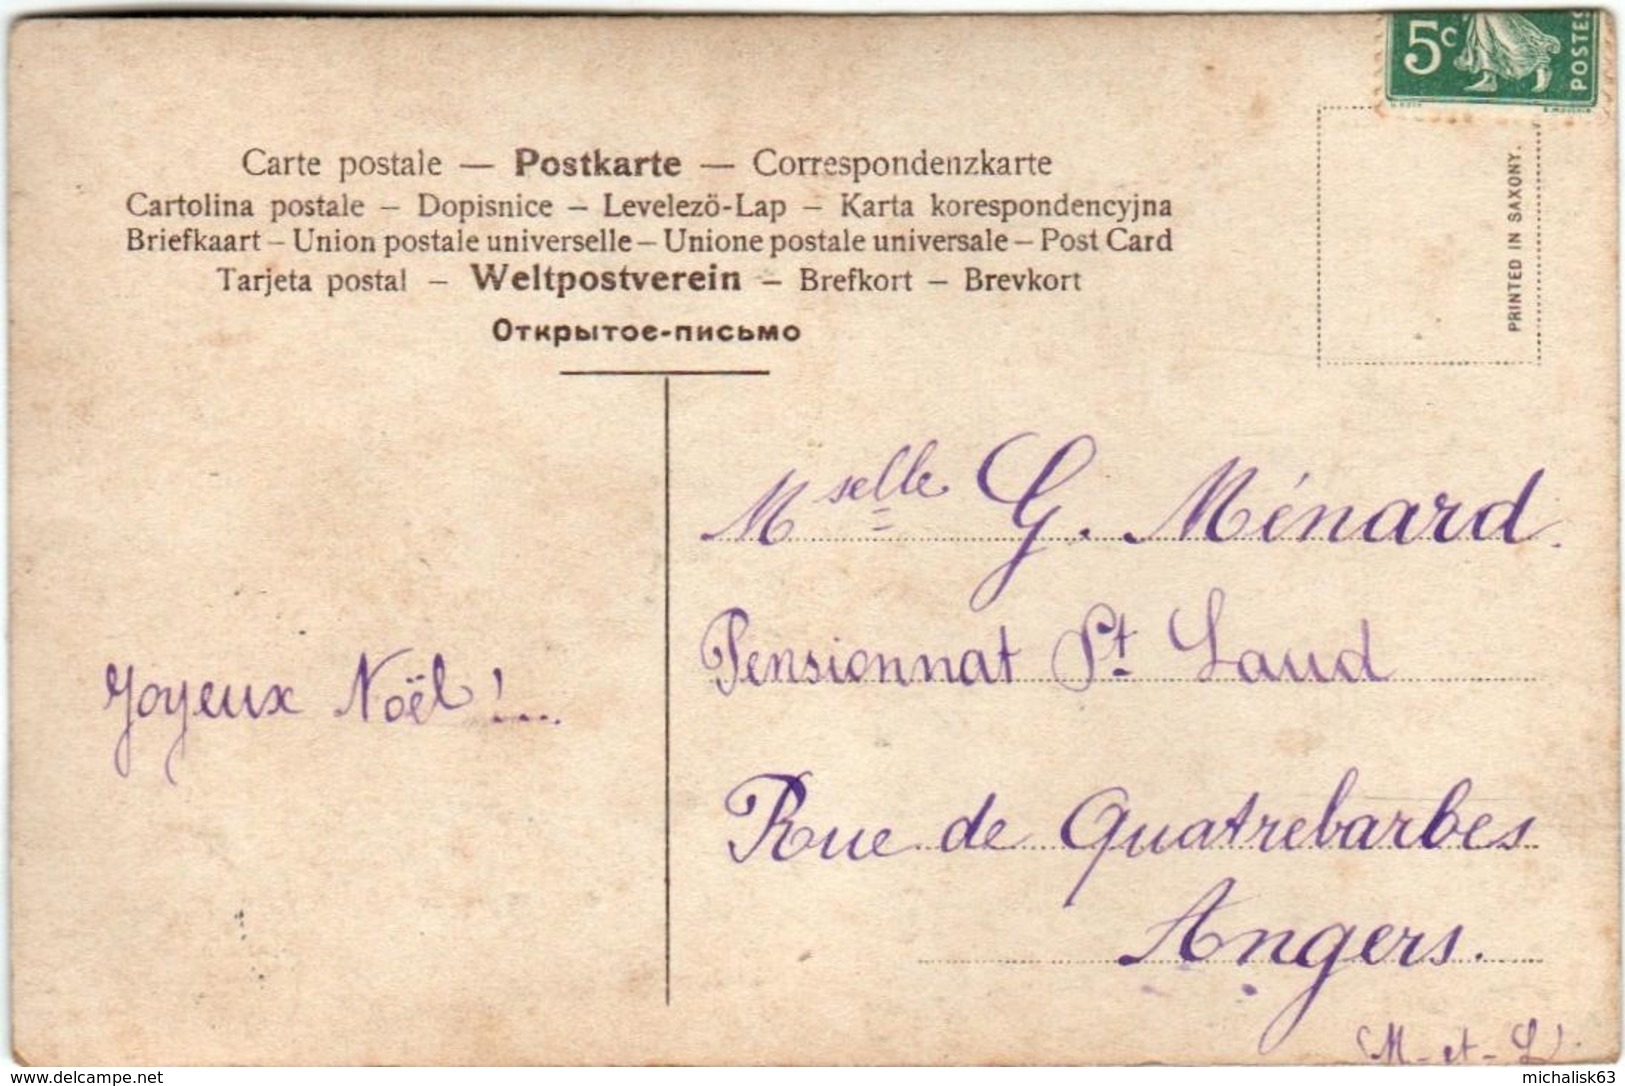 5c
POSTES
Carte postale — Postkarte — Correspondenzkarte
Cartolina postale – Dopisnice – Levelező-Lap – Karta korespondencyjna
Briefkaart – Union postale universelle – Unione postale universale – Post Card
Tarjeta postal – Weltpostverein – Brefkort – Brevkort
Открытое-письмо
PRINTED IN SAXONY.
Joyeux Noël !...
Mselle G. Ménard.
Pensionnat St Laud
Rue de Quatrebarbes
Angers.
(M-et-L).
www.delcampe.net
michalisk63